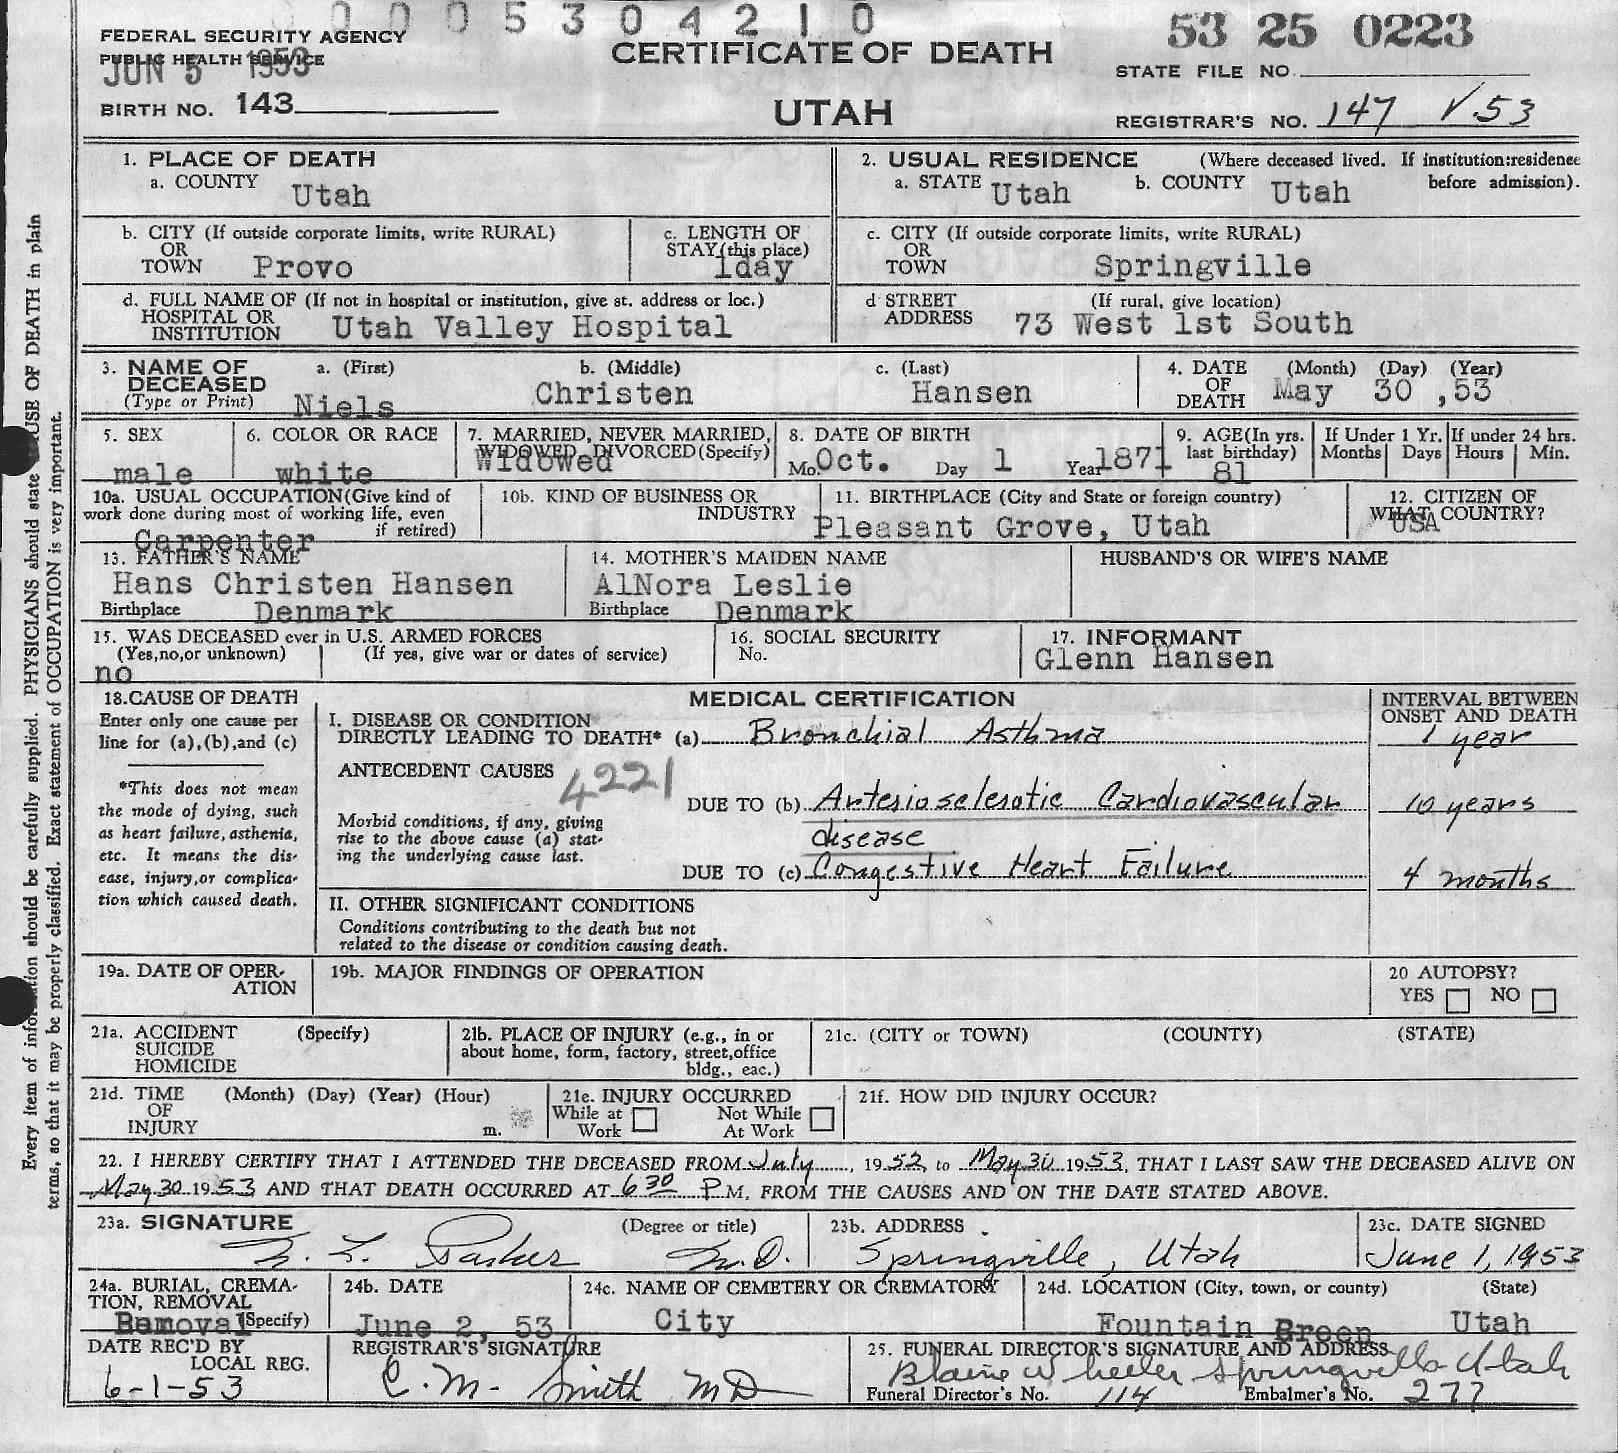 0005304210
53 25 0223
FEDERAL SECURITY AGENCY
PUBLIC HEALTH SERVICE
JUN 5 1953
CERTIFICATE OF DEATH
STATE FILE NO.
BIRTH NO. 143
UTAH
REGISTRAR'S NO. 147 V 53
1. PLACE OF DEATH
a. COUNTY Utah
2. USUAL RESIDENCE (Where deceased lived. If institution:residence before admission).
a. STATE Utah b. COUNTY Utah
b. CITY (If outside corporate limits, write RURAL)
OR
TOWN Provo
c. LENGTH OF
STAY (this place)
1day
c. CITY (If outside corporate limits, write RURAL)
OR
TOWN Springville
d. FULL NAME OF (If not in hospital or institution, give st. address or loc.)
HOSPITAL OR
INSTITUTION Utah Valley Hospital
d STREET (If rural, give location)
ADDRESS 73 West 1st South
3. NAME OF DECEASED
(Type or Print)
a. (First) Niels
b. (Middle) Christen
c. (Last) Hansen
4. DATE OF DEATH (Month) (Day) (Year)
May 30 ,53
5. SEX
male
6. COLOR OR RACE
white
7. MARRIED, NEVER MARRIED,
WIDOWED, DIVORCED (Specify)
Widowed
8. DATE OF BIRTH
Mo. Oct. Day 1 Year 1871
9. AGE (In yrs. last birthday)
81
If Under 1 Yr.
Months Days
If under 24 hrs.
Hours Min.
10a. USUAL OCCUPATION (Give kind of
work done during most of working life, even
if retired)
Carpenter
10b. KIND OF BUSINESS OR
INDUSTRY
11. BIRTHPLACE (City and State or foreign country)
Pleasant Grove, Utah
12. CITIZEN OF
WHAT COUNTRY?
USA
13. FATHER'S NAME
Hans Christen Hansen
Birthplace Denmark
14. MOTHER'S MAIDEN NAME
AlNora Leslie
Birthplace Denmark
HUSBAND'S OR WIFE'S NAME
15. WAS DECEASED ever in U.S. ARMED FORCES
(Yes,no,or unknown) (If yes, give war or dates of service)
no
16. SOCIAL SECURITY
No.
17. INFORMANT
Glenn Hansen
18. CAUSE OF DEATH
Enter only one cause per
line for (a),(b),and (c)
*This does not mean
the mode of dying, such
as heart failure, asthenia,
etc. It means the dis-
ease, injury,or complica-
tion which caused death.
MEDICAL CERTIFICATION
I. DISEASE OR CONDITION
DIRECTLY LEADING TO DEATH* (a) Bronchial Asthma
INTERVAL BETWEEN
ONSET AND DEATH
1 year
ANTECEDENT CAUSES
4221
Morbid conditions, if any, giving
rise to the above cause (a) stat-
ing the underlying cause last.
DUE TO (b) Arteriosclerotic Cardiovascular
disease
10 years
DUE TO (c) Congestive Heart Failure
4 months
II. OTHER SIGNIFICANT CONDITIONS
Conditions contributing to the death but not
related to the disease or condition causing death.
19a. DATE OF OPER-
ATION
19b. MAJOR FINDINGS OF OPERATION
20 AUTOPSY?
YES NO
21a. ACCIDENT (Specify)
SUICIDE
HOMICIDE
21b. PLACE OF INJURY (e.g., in or
about home, form, factory, street,office
bldg., eac.)
21c. (CITY or TOWN) (COUNTY) (STATE)
21d. TIME (Month) (Day) (Year) (Hour)
OF
INJURY m.
21e. INJURY OCCURRED
While at Work
Not While At Work
21f. HOW DID INJURY OCCUR?
22. I HEREBY CERTIFY THAT I ATTENDED THE DECEASED FROM July, 1952, to May 30 1953, THAT I LAST SAW THE DECEASED ALIVE ON
May 30 1953 AND THAT DEATH OCCURRED AT 6 30 P M, FROM THE CAUSES AND ON THE DATE STATED ABOVE.
23a. SIGNATURE (Degree or title)
M.D.
23b. ADDRESS
Springville, Utah
23c. DATE SIGNED
June 1, 1953
24a. BURIAL, CREMA-
TION, REMOVAL
(Specify)
Removal
24b. DATE
June 2, 53
24c. NAME OF CEMETERY OR CREMATORY
City
24d. LOCATION (City, town, or county) (State)
Fountain Green Utah
DATE REC'D BY
LOCAL REG.
6-1-53
REGISTRAR'S SIGNATURE
C. M. Smith MD
25. FUNERAL DIRECTOR'S SIGNATURE AND ADDRESS
Blaine Wheeler Springville Utah
Funeral Director's No. 114 Embalmer's No. 277
Every item of information should be carefully supplied. PHYSICIANS should state CAUSE OF DEATH in plain
terms, so that it may be properly classified. Exact statement of OCCUPATION is very important.